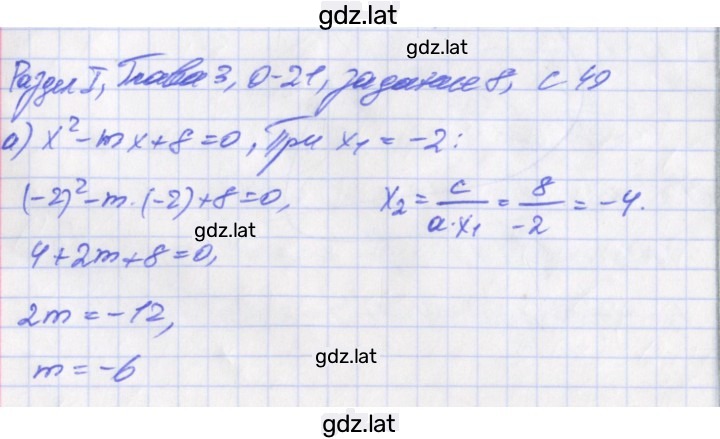 gdz.lat
gdz.lat
Раздел I, Глава 3, О-21, задание 8, с 49
а) x² - mx + 8 = 0, При x₁ = -2:
(-2)² - m·(-2) + 8 = 0, x₂ = c/(a·x₁) = 8/-2 = -4.
gdz.lat
4 + 2m + 8 = 0,
2m = -12,
gdz.lat
m = -6
gdz.lat